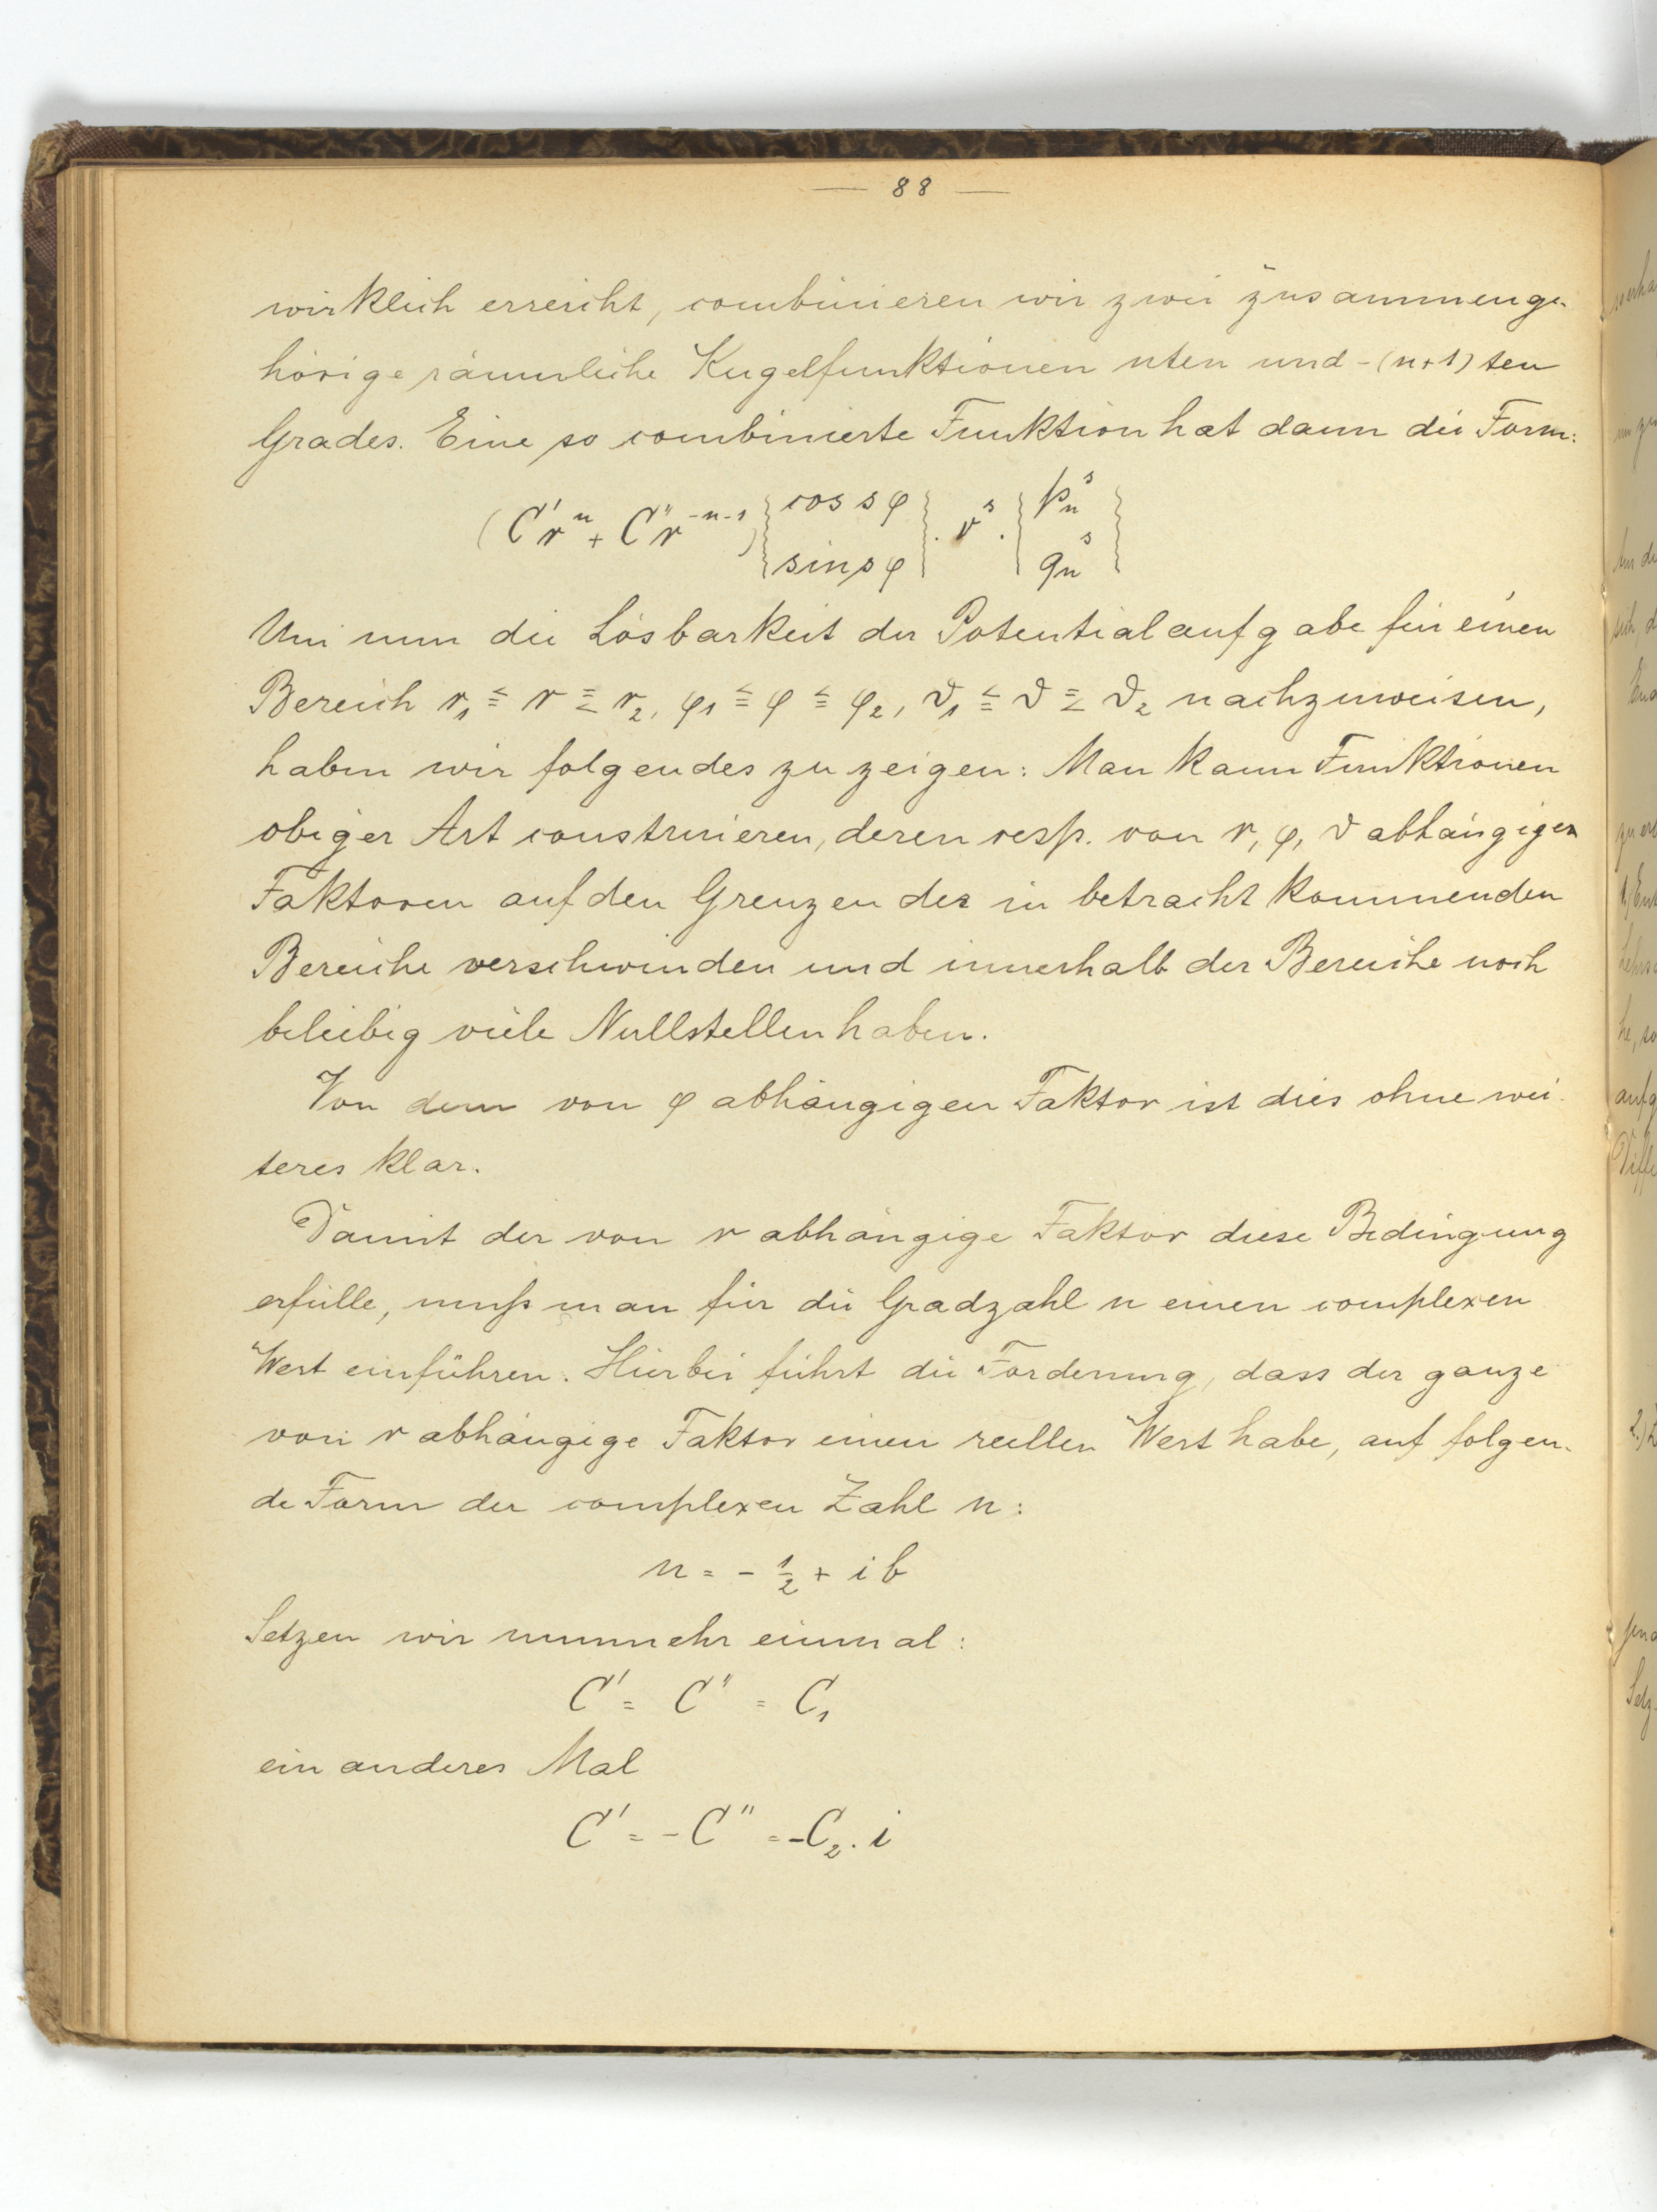 — 88 —
wirklich erreicht, combinieren wir zwei zusammenge-
hörige räumliche Kugelfunktionen nten und -(n+1)ten
Grades. Eine so combinierte Funktion hat dann die Form:
(C'rⁿ + C''r⁻ⁿ⁻¹) { cos sφ / sin sφ } . vˢ . { pₙˢ / qₙˢ }
Um nun die Lösbarkeit der Potentialaufgabe für einen
Bereich r₁ ≦ r ≦ r₂, φ₁ ≦ φ ≦ φ₂, ϑ₁ ≦ ϑ ≦ ϑ₂ nachzuweisen,
haben wir folgendes zu zeigen: Man kann Funktionen
obiger Art construieren, deren resp. von r, φ, ϑ abhängigen
Faktoren auf den Grenzen der in betracht kommenden
Bereiche verschwinden und innerhalb der Bereiche noch
beliebig viele Nullstellen haben.
Von dem von φ abhängigen Faktor ist dies ohne wei-
teres klar.
Damit der von r abhängige Faktor diese Bedingung
erfülle, muß man für die Gradzahl n einen complexen
Wert einführen. Hierbei führt die Forderung, dass der ganze
von r abhängige Faktor einen reellen Wert habe, auf folgen-
de Form der complexen Zahl n:
n = - ½ + i b
Setzen wir nunmehr einmal:
C' = C'' = C₁
ein anderes Mal
C' = - C'' = -C₂ . i